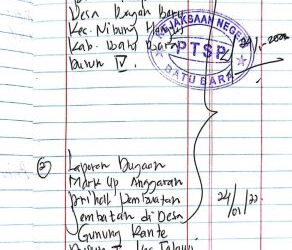 Desa Dayah Baru
Kec. Nibung Hangus
Kab. Batu Bara
Dusun V.
KEJAKSAAN NEGERI
PTSP
BATU BARA
②
Laporan Dugaan
Mark Up Anggaran
prihal Pembuatan
Jembatan di Desa
Gunung Rante
24/01/22.